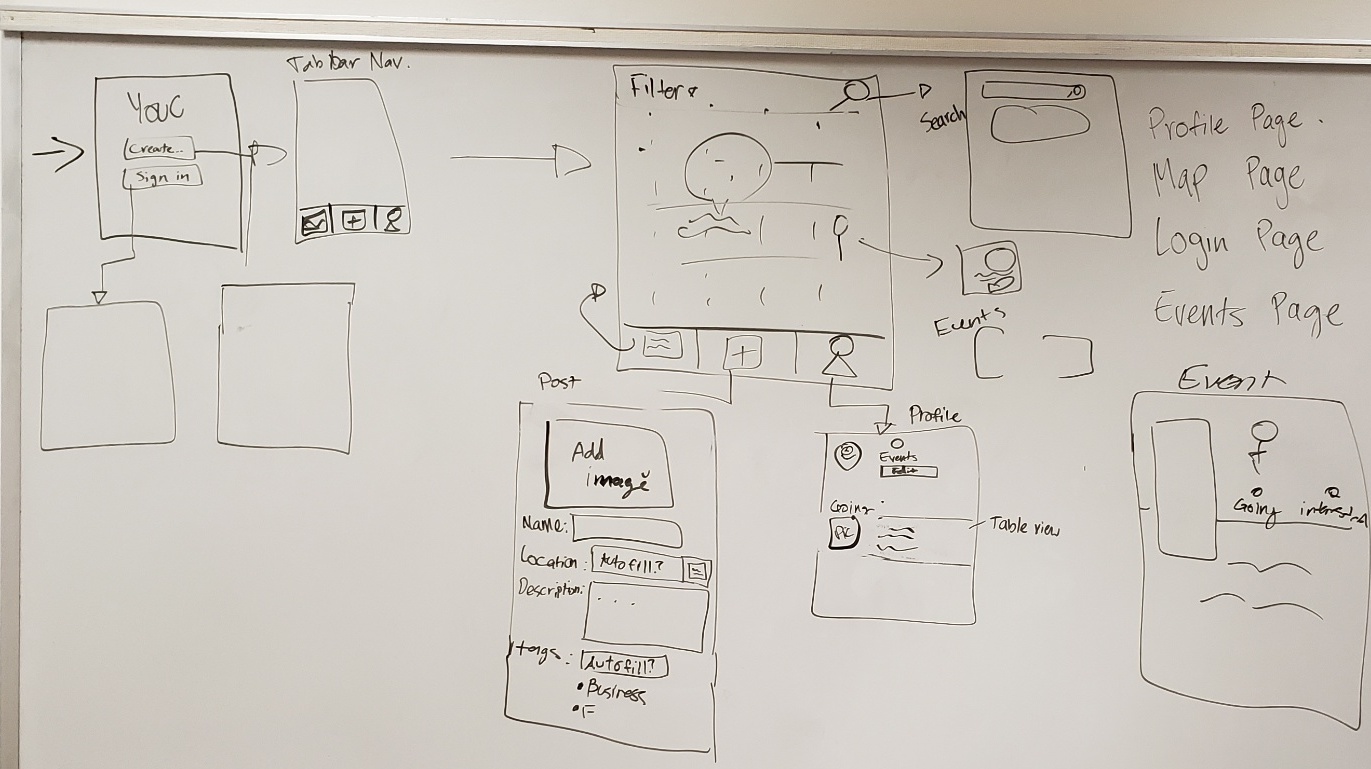 YouC
Create...
Sign in
Tab bar Nav.
Filters
Search
Events
Profile Page.
Map Page
Login Page
Events Page
Post
Add
image
Name:
Location:
Autofill?
Description:
...
#tags:
Autofill?
• Business
• F
Profile
Events
Edit
Going
Table view
Event
Going
interested